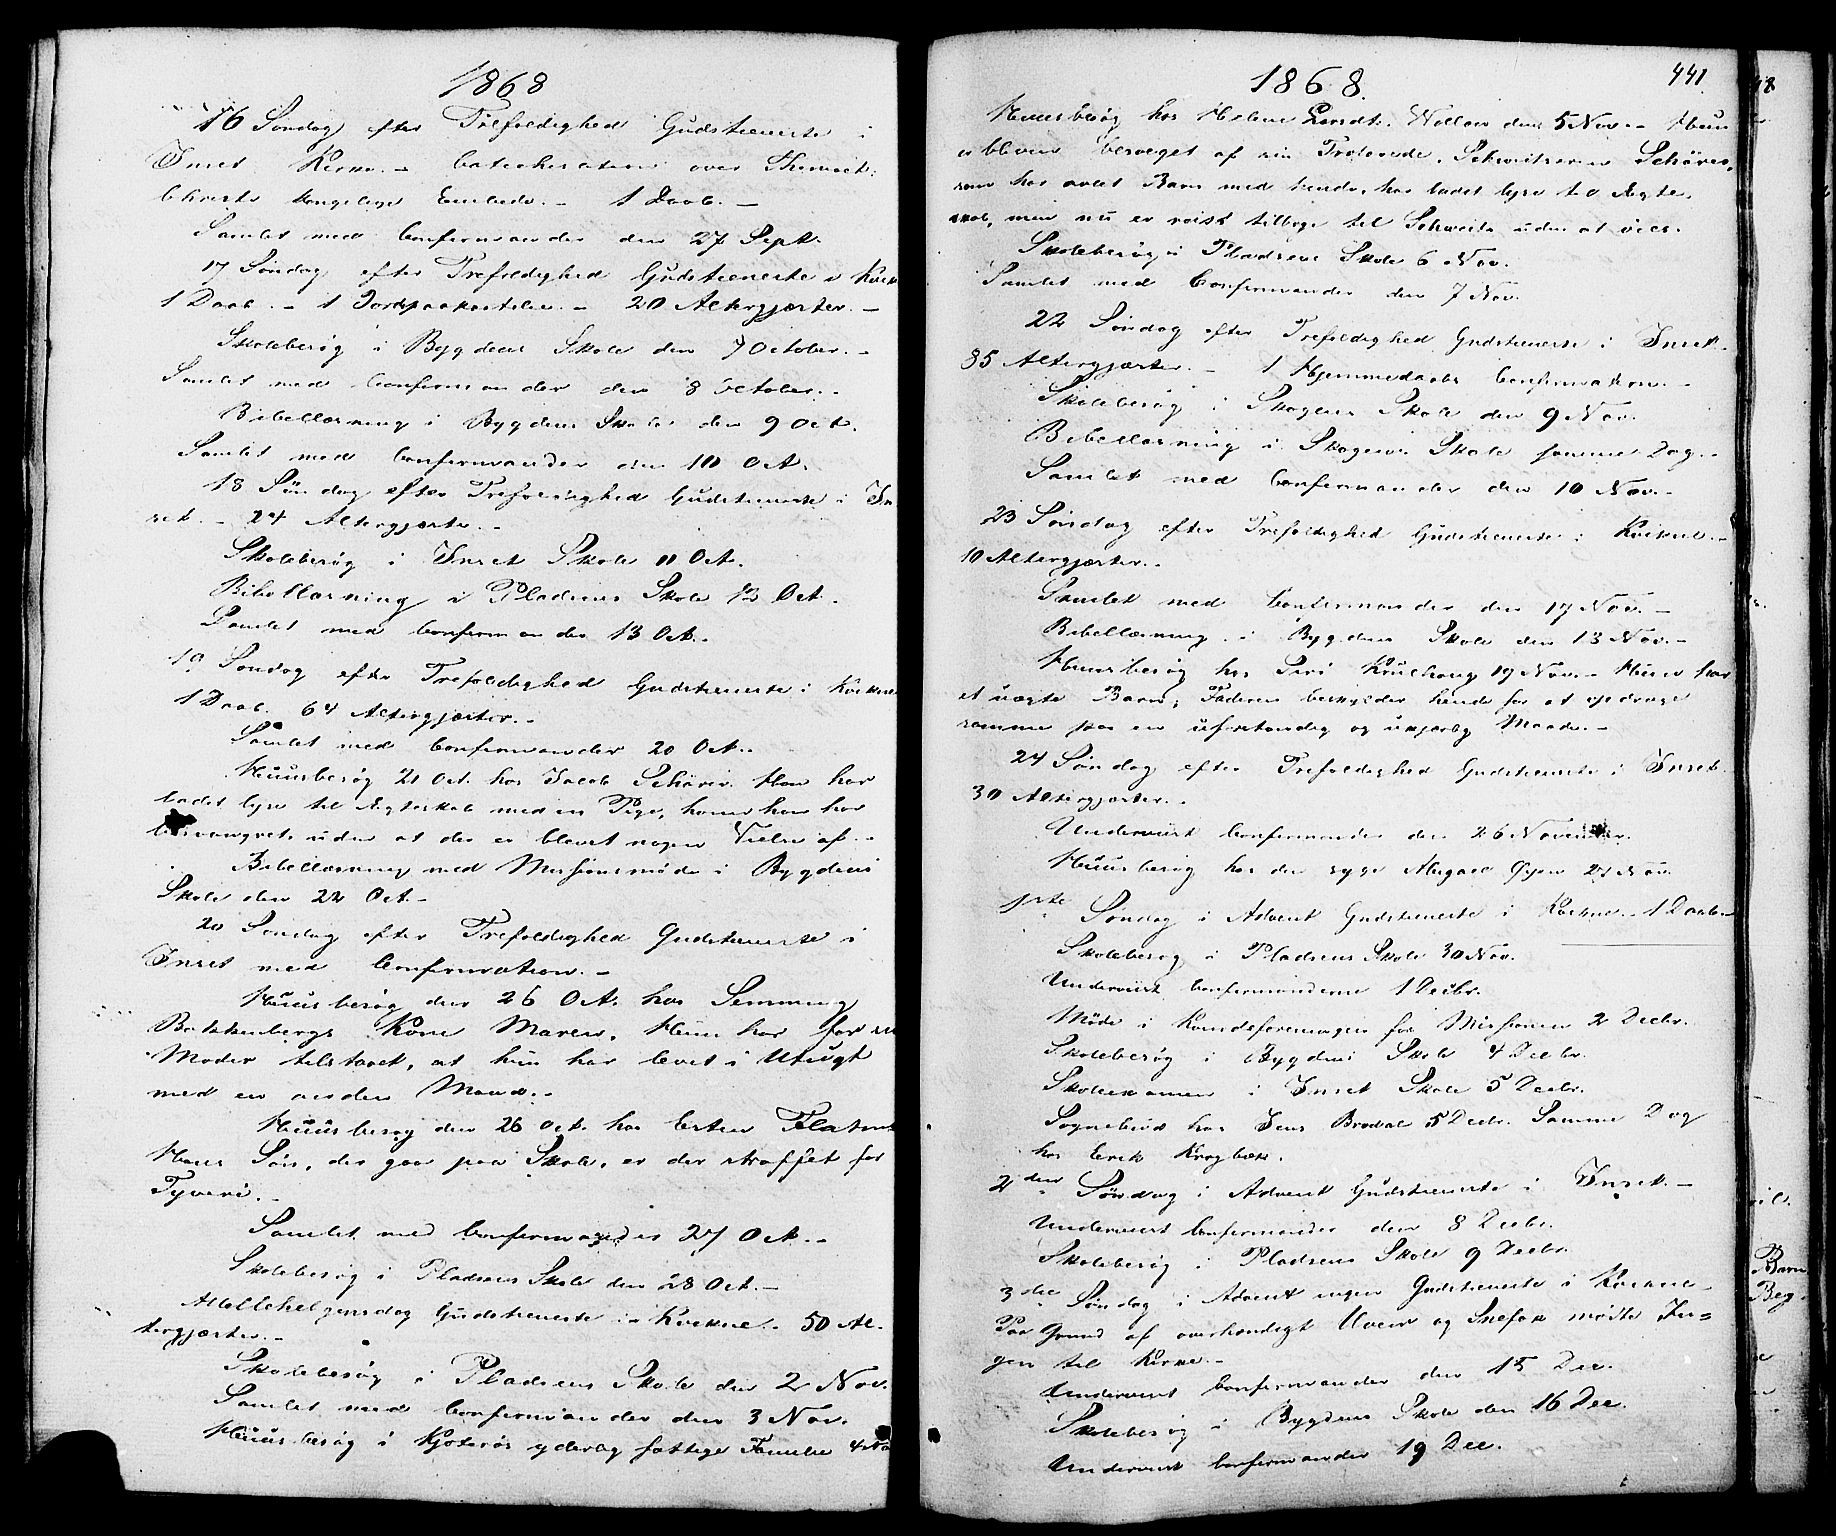 1868
16 Søndag efter Trefoldighed Gudstieneste i
Inset Kirke. - Catechisation over
Christi kongelige Embede. - 1 Daab. -
Samlet med Confirmander den 27 Sept.
17 Søndag efter Trefoldighed Gudstieneste i Kvikne
1 Daab. - 1 Jordpaakastelse. - 20 Altergjæster. -
Skolebesøg i Bygdens Skole den 7 October. -
Samlet med Confirmander den 8 October. -
Bibellæsning i Bygdens Skole den 9 Oct.
Samlet med Confirmander den 10 Oct.
18 Søndag efter Trefoldighed Gudstieneste i In
set. - 24 Altergjæster. -
Skolebesøg i Inset Skole 11 Oct.
Bibellæsning i Pladsens Skole 12 Oct.
Samlet med Confirmander 13 Oct. -
19 Søndag efter Trefoldighed Gudstieneste i Kvikne
1 Daab. 64 Altergjæster. -
Samlet med Confirmander 20 Oct. -
Huusbesøg 21 Oct. hos Jacob Schärer. Han har
ladet lyse til Ægteskab med en Pige, hvem han har
besvangret, uden at der er blevet nogen Vielse af. -
Bibellæsning med Missionsmøde i Bygdens
Skole den 22 Oct. -
20 Søndag efter Trefoldighed Gudstieneste i
Inset med Confirmation. -
Huusbesøg den 26 Oct. hos Semming
Bakkenbergs Kone Maren. Hun har for sin
Moder tilstaaet, at hun har levet i Utugt
med en anden Mand. -
Huusbesøg den 26 Oct. hos Esten
Hans Søn, der gaar paa Skole, er der straffet for
Tyveri. -
Samlet med Confirmander 27 Oct. -
Skolebesøg i Pladsens Skole den 28 Oct. -
Allehelgensdag Gudstieneste i Kvikne. 50 Al-
tergjæster. -
Skolebesøg i Pladsens Skole den 2 Nov.
Samlet med Confirmander den 3 Nov.
Huusbesøg i yderlig fattige Familie 4 No
1868.
441
Huusbesøg hos Helene den 5 Nov. - Hun
er bleven besveget af sin Trolovede, Schweitseren Schärer,
som har avlet Barn med hende, har ladet lyse til Ægte-
skab, men nu er reist tilbage til Schweits uden at vies.
Skolebesøg i Pladsens Skole 6 Nov.
Samlet med Confirmander den 7 Nov.
22 Søndag efter Trefoldighed Gudstieneste i Inset.
85 Altergjæster. - 1 Hjemmedaabs Confirmation. -
Skolebesøg i Skogens Skole den 9 Nov.
Bibellæsning i Skogens Skole samme Dag. -
Samlet med Confirmander den 10 Nov. -
23 Søndag efter Trefoldighed Gudstieneste i Kvikne. -
10 Altergjæster. -
Samlet med Confirmander den 17 Nov. -
Bibellæsning i Bygdens Skole den 13 Nov. -
Huusbesøg hos Siri 19 Nov. - Hun har
et uægte Barn; Faderen beskylder hende for at opdrage
samme paa en uforstandig og ukjærlig Maade. -
24 Søndag efter Trefoldighed Gudstieneste i Inset.
30 Altergjæster. -
Underviist Confirmander den 26 November.
Huusbesøg hos den syge 27 Nov.
1ste Søndag i Advent Gudstieneste i Kvikne. - 1 Daab. -
Skolebesøg i Pladsens Skole 30 Nov.
Underviist Confirmanderne 1 Decbr.
Møde i Kvindeforeningen for Missionen 2 Decbr.
Skolebesøg i Bygdens Skole 4 Decbr.
Skoleexamen i Inset Skole 5 Decbr.
Sognebud hos Jens Brodal 5 Decbr. Samme Dag
hos Erik Krogbæk.
2den Søndag i Advent Gudstieneste i Inset. -
Underviist Confirmander den 8 Decbr.
Skolebesøg i Pladsens Skole 9 Decbr.
3die Søndag i Advent ingen Gudstieneste i Kvikne.
Paa Grund af overhændigt Uveir og Snefok mødte In-
gen til Kirke. -
Underviist Confirmander den 15 Dec.
Skolebesøg i Bygdens Skole den 16 Dec.
Underviist Confirmander 19 Dec.
Barn
Beg